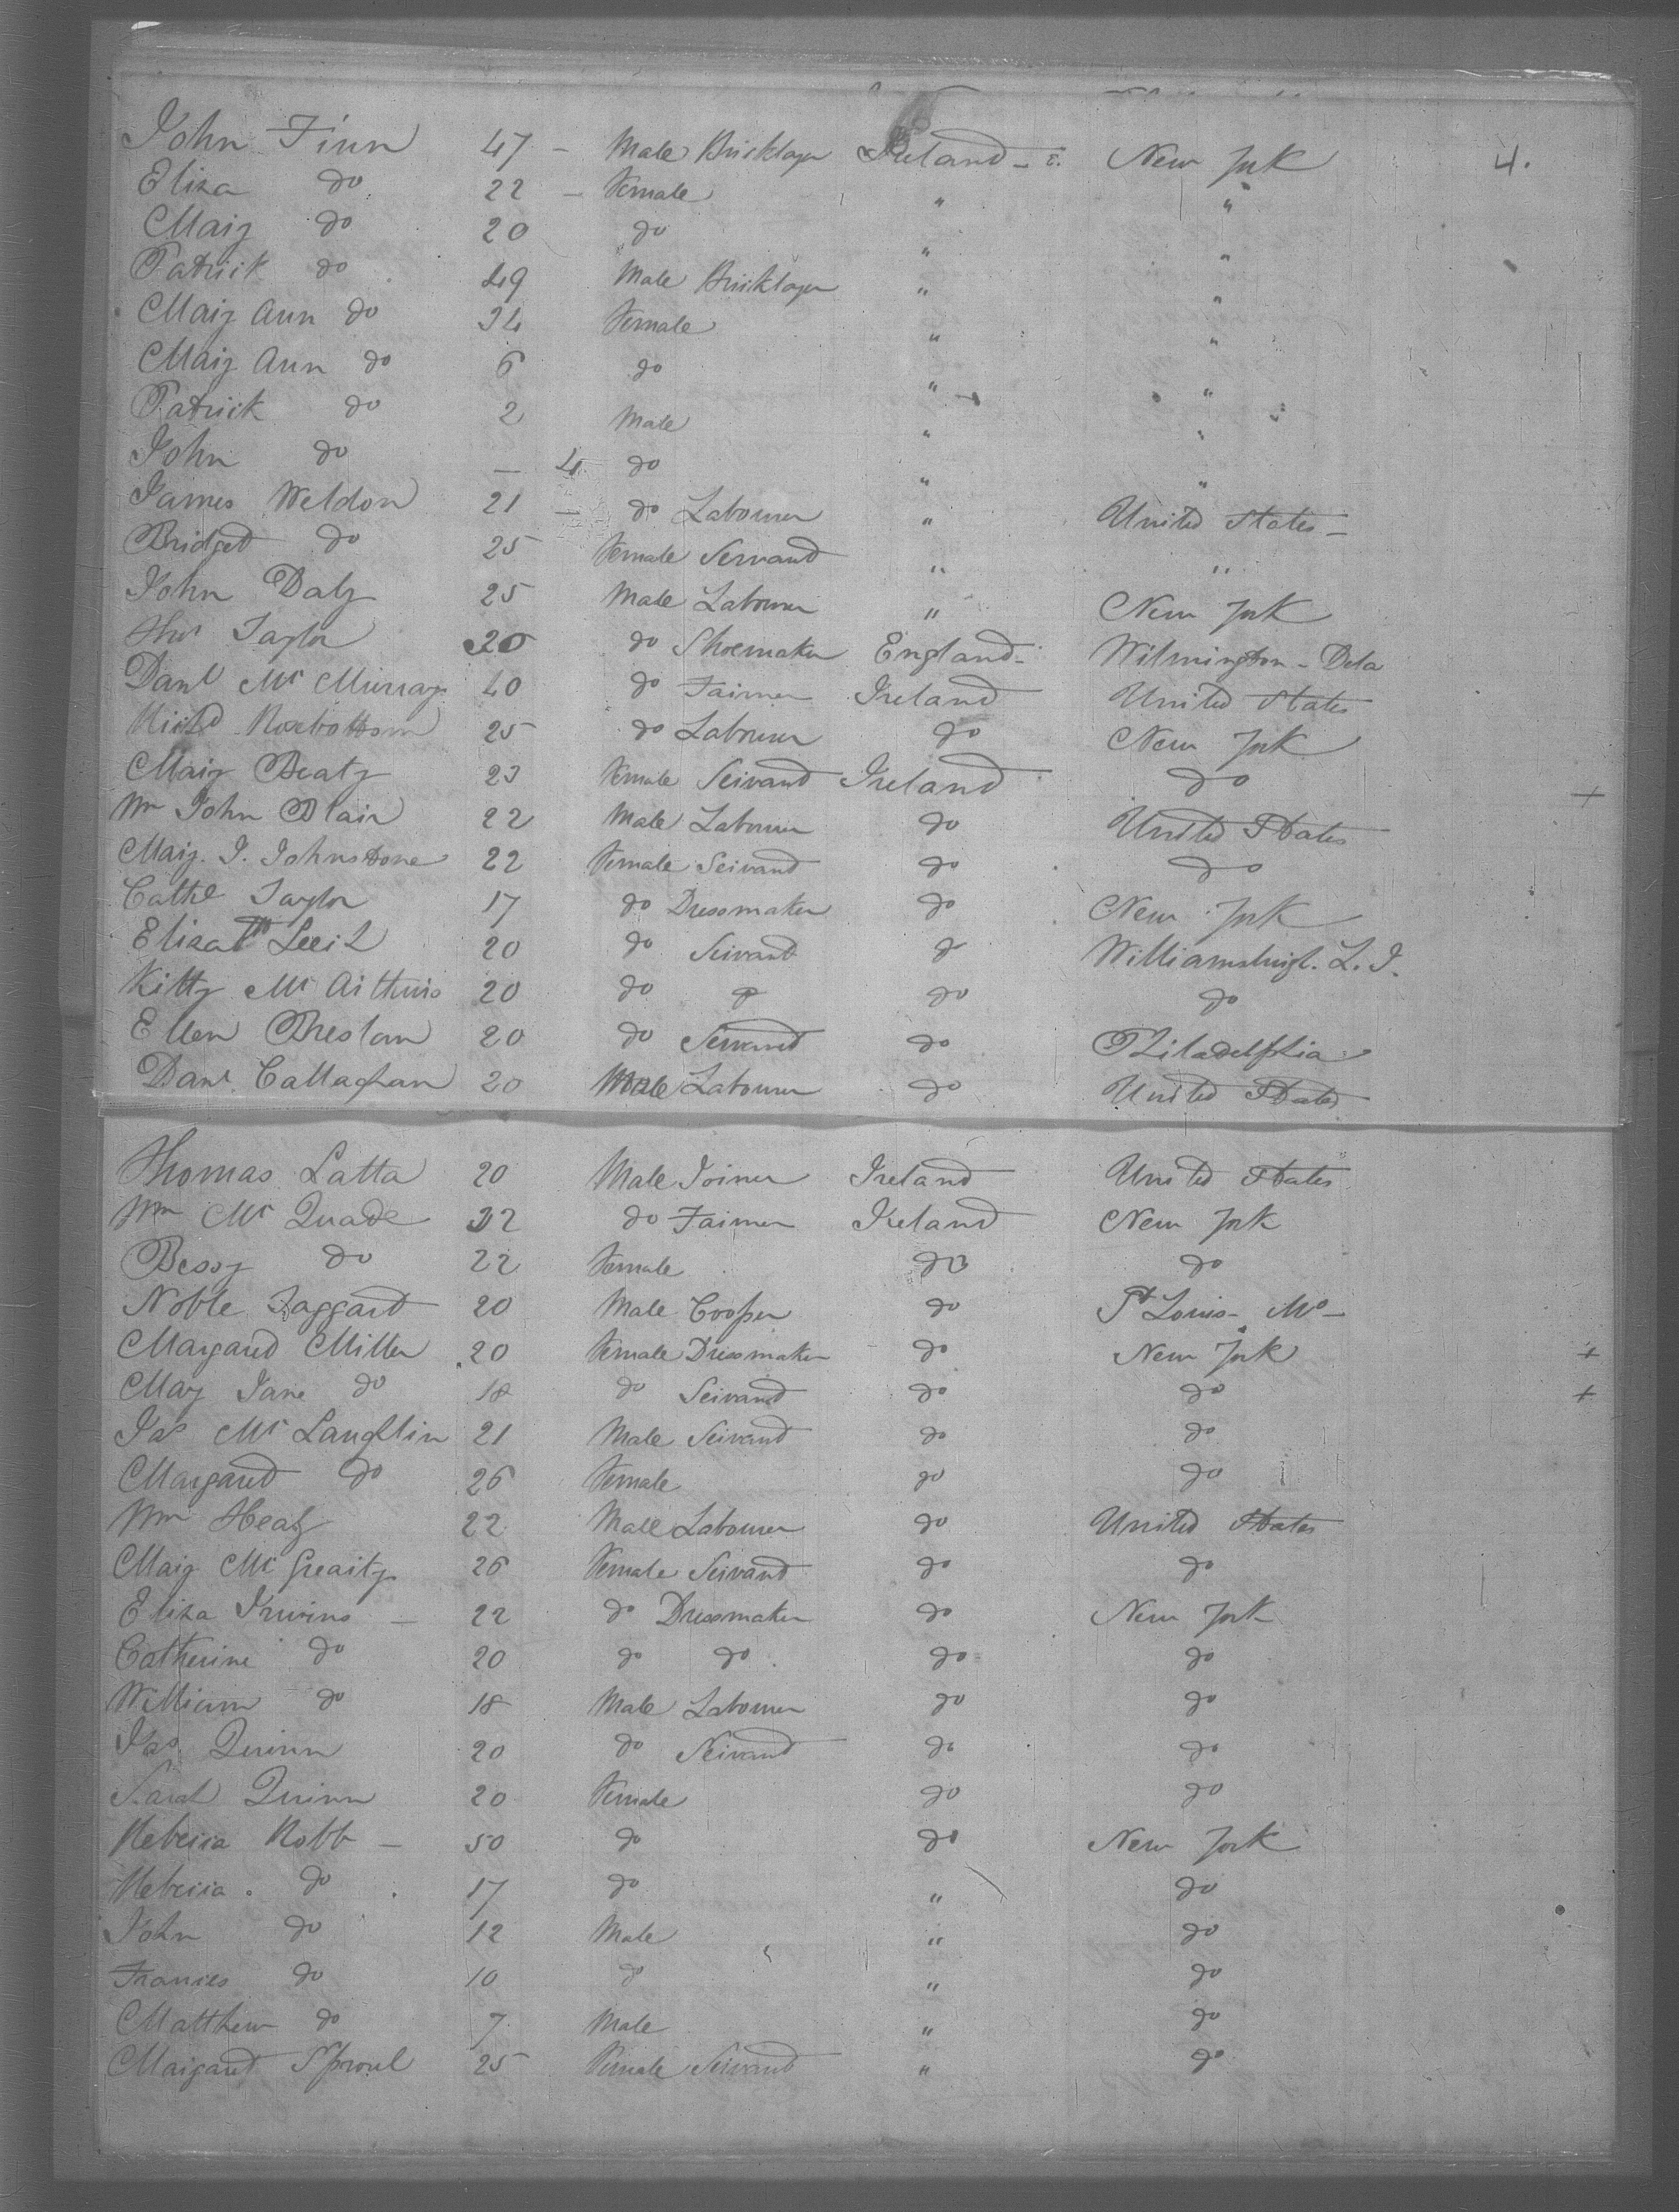 John Finn 47 - Male Bricklayer Ireland - New York 4.
Eliza do 22 - Female " "
Mary do 20 do " "
Patrick do 49 Male Bricklayer " "
Mary Ann do 34 Female " "
Mary Ann do 6 do " "
Patrick do 2 Male " "
John do - 4 do " "
James Weldon 21 - do Labourer " United States -
Bridget do 25 Female Servant " "
John Daly 25 Male Labourer " New York
Thos Taylor 20 do Shoemaker England - Wilmington - Dela
Danl McMurray 40 do Farmer Ireland United States
Richd Roxbottom 25 do Labourer do New York
Mary Beaty 23 Female Servant Ireland do +
Wm John Blair 22 Male Labourer do United States
Mary J. Johnstone 22 Female Servant do do
Cathe Taylor 17 do Dressmaker do New York
Elizath 20 do Servant do Williamsburgh. L. I.
Kitty 20 do do do do
Ellen Breslan 20 do Servant do Philadelphia
Danl. Callaghan 20 Male Labourer do United States
Thomas Latta 20 Male Joiner Ireland United States
Wm McQuade 32 do Farmer Ireland New York
Bessy do 22 Female do do
Noble Taggart 20 Male Cooper do St Louis - Mo -
Margaret Miller 20 Female Dressmaker do New York +
May Jane do 18 do Servant do do +
Jas McLaughlin 21 Male Servant do do
Margaret do 26 Female do do
Wm Healy 22 Male Labourer do United States
Mary McGearty 26 Female Servant do do
Eliza Irwins - 22 do Dressmaker do New York
Catherine do 20 do do do do
William do 18 Male Labourer do do
Jas Quinn 20 do Servant do do
Sarah Quinn 20 Female do do
Rebecca Robb - 50 do do New York
Rebecca do 17 do " do
John do 12 Male " do
Frances do 10 do " do
Matthew do 7 Male " do
Margaret Sproul 25 Female Servant " do